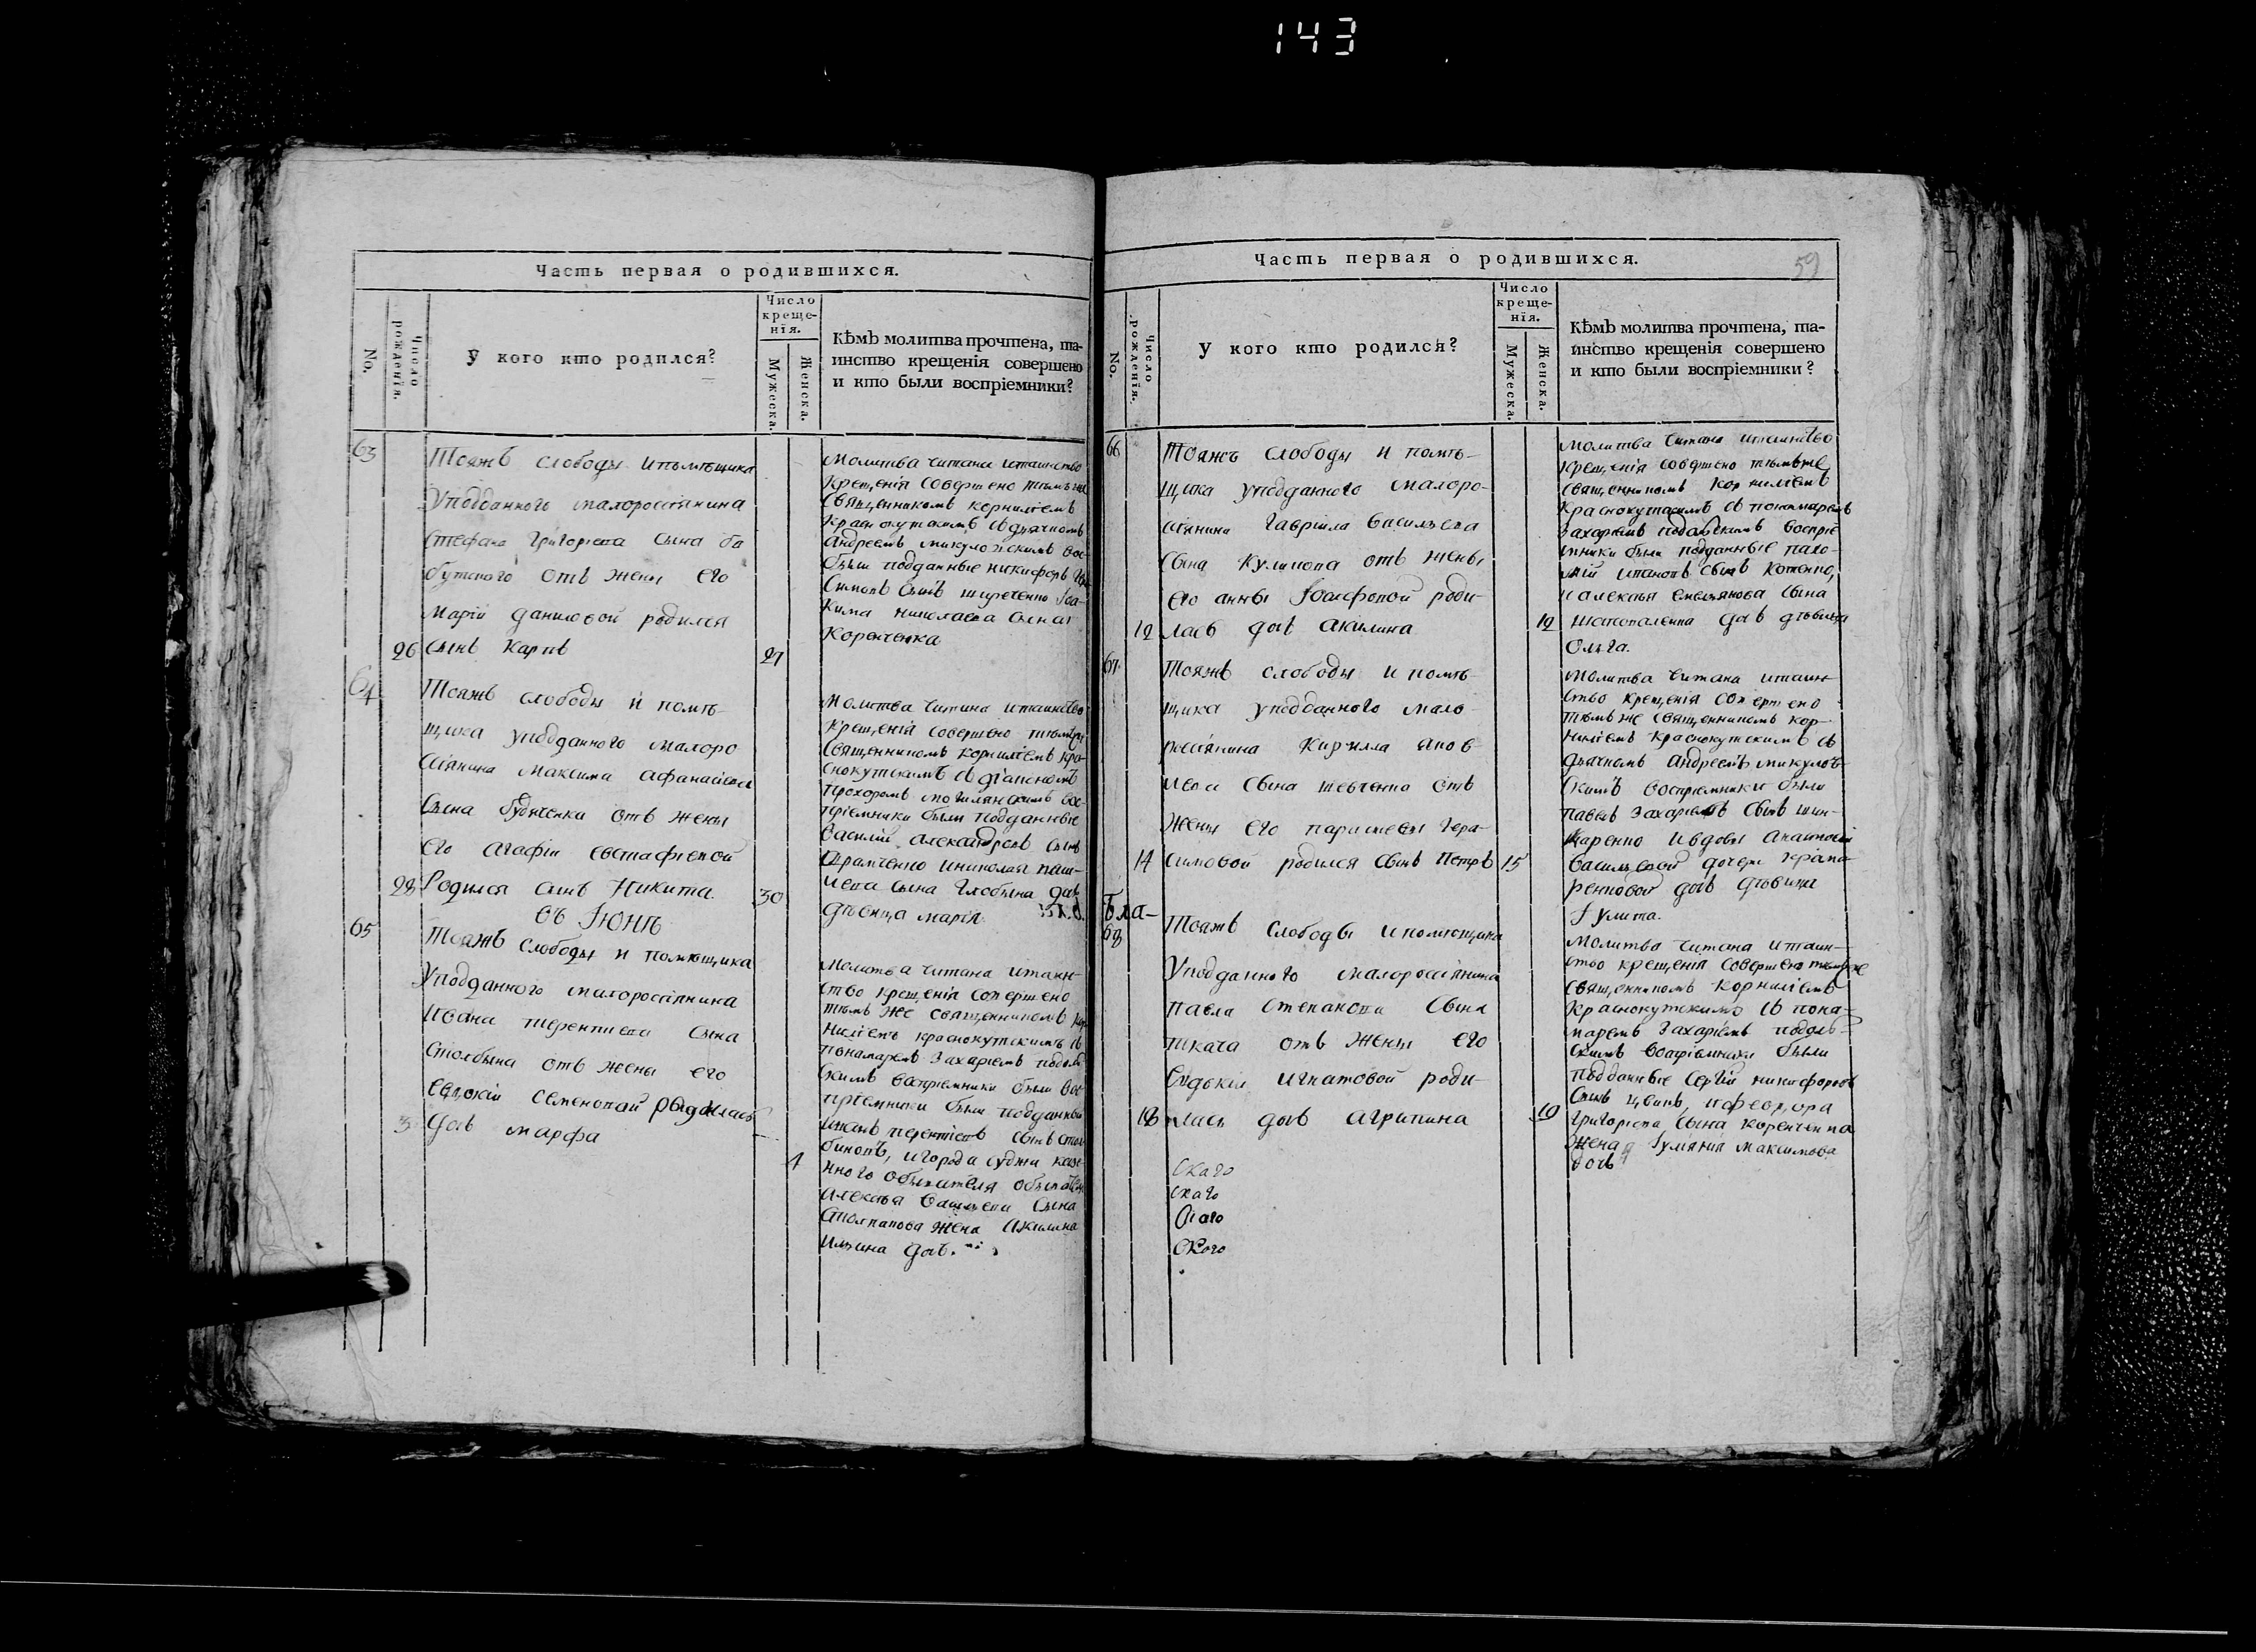 143
Часть первая о родившихся.
No.
Число рожденія.
У кого кто родился?
Число
креще-
нія.
Мужеска.
Женска.
Кѣмъ молитва прочтена, та-
инство крещенія совершено
и кто были воспріемники?
63
Тояжъ слободы ипомѣщика
Уподданного малороссіянина
Стефана Григоріева сына ба
бутского отъ жены его
Маріи даниловой родился
26 сынъ Карпъ 27
Молитва читана итаинство
Крещенія совершено тѣмъ же
Священникомъ корниліемъ
Краснокутскимъ съ дьячкомъ
Андреемъ микуложскимъ вос-
были подданные никифоръ
Симоновъ Сынъ Іоа-
Кима николаева сына
64
Тояжъ слободы и помѣ-
щика уподданного малоро
сіянина Максима Афанасіева
Сына отъ жены
его Агафіи евстафіевой
28 Родился сынъ Никита. 30
Молитва читана итаинство
Крещенія совершено тѣмъже
Священникомъ корниліемъ кра-
снокутскимъ съ діакономъ
Прохоромъ вос-
пріемники были подданные
Василій александровъ сынъ
иниколая
сына дочь
дѣвица марія.
въ Іюнѣ
65
Тояжъ слободы и помѣщика
Уподданного малороссіянина
Ивана терентиева сына
Столбына отъ жены его
Евдокіи семеновой родилась
3 дочь марфа 4
Молитва читана итаин-
ство крещенія совершено
тѣмъ же священникомъ кор
ниліемъ краснокутскимъ съ
пономаремъ Захаріемъ подоль
скимъ воспріемники были вос-
пріемники были подданный
иванъ терентіевъ сынъ стол
биновъ, игорода суджи казе-
нного обывателя
алексѣя васильева сына
жена Акилина
Ильина дочь.
Часть первая о родившихся.
59
No.
Число рожденія.
У кого кто родился?
Число
креще-
нія.
Мужеска.
Женска.
Кѣмъ молитва прочтена, та-
инство крещенія совершено
и кто были воспріемники?
66
Тояжъ слободы и помѣ-
щика уподданного малоро-
сіянина Гавріила васильева
Сына Кулинова отъ жены
его анны Іосифовой роди-
12 лась дочь акилина 12
Молитва читана итаинство
Крещенія совершено тѣмъже
Священникомъ Корниліемъ
Краснокутскимъ съ пономаремъ
Захаріемъ подольскимъ воспріе
мники были подданные
сынъ Котенко,
и алексѣя емельянова сына
дочь дѣвица
Ольга.
67
Тояжъ слободы и помѣ-
щика уподданного мало-
россіянина Кирилла яков-
лева сына шевченка отъ
Жены его параскевы Гера-
14 симовой родился сынъ Петръ 15
Молитва читана итаин-
ство крещенія совершено
тѣмъ же священникомъ кор-
ниліемъ Краснокутскимъ съ
дьячкомъ Андреемъ микулож-
скимъ воспріемники были
павелъ Захаріевъ сынъ шин-
каренко ивдовы
васильевой дочери
дочь дѣвица
Іулита.
Бла-
68
Тояжъ слободы ипомѣщика
Уподданного малороссіянина
Павла Степанова Сына
ткача отъ жены его
Евдокіи игнатовой роди-
18 лась дочь агрипина 19
Молитва читана итаин-
ство крещенія совершено тѣмъже
священникомъ корниліемъ
Краснокутскимъ съ поно-
маремъ Захаріемъ подоль-
скимъ воспріемники были
подданные Сергій никифоровъ
сынъ ифеодора
Григоріева сына
жена Іуліанія максимова
дочь
Скаго
скаго
скаго
Скаго